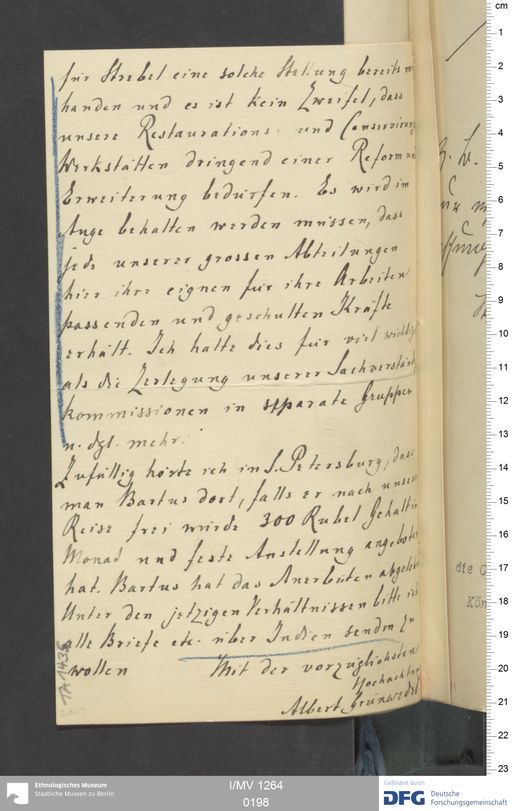 für Strebel eine solche Stellung bereits
handen und es ist kein Zweifel, dass
unsere Restaurations- und Conservirungs
Werkstätten dringend einer Reform und
Erweiterung bedürfen. Es wird im
Auge behalten werden müssen, dass
jede unserer grossen Abteilungen
hier ihre eignen für ihre Arbeiten
passenden und geschulten Kräfte
erhält. Ich halte dies für viel wichtiger
als die Zerlegung unserer Sachverständ
kommissionen in separate Gruppen
u. dgl. mehr.
Zufällig hörte ich in S. Petersburg, dass
man Bartus dort, falls er nach unserer
Reise frei würde 300 Rubel Gehalt im
Monat und feste Anstellung angeboten
hat. Bartus hat das Anerbieten abgelehnt
Unter den jetzigen Verhältnissen bitte ich
alle Briefe etc. über Indien senden zu
wollen Mit der vorzüglichsten
Hochachtung
Albert Grünwedel
IA 1435
die
Kön
cm
1
2
3
4
5
6
7
8
9
10
11
12
13
14
15
16
17
18
19
20
21
22
23
Ethnologisches Museum
Staatliche Museen zu Berlin
I/MV 1264
0198
Gefördert durch
DFG Deutsche
Forschungsgemeinschaft